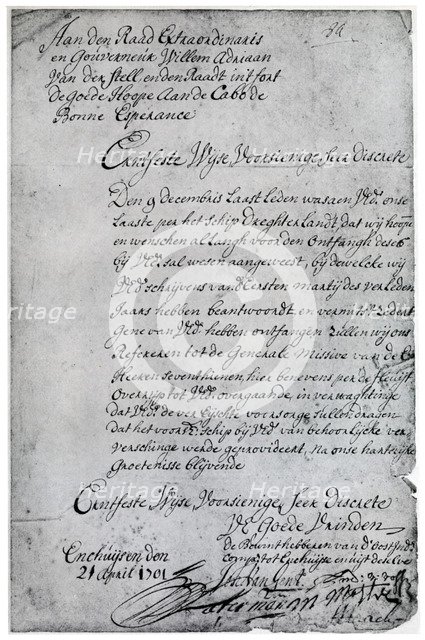 Aan den Raad Extraordinaris
en Gouverneur Willem Adriaan
Van der Stell en den Raadt int fort
de Goede Hoope Aan de Cabo de
Bonne Esperance
Erntfeste Wyse, Voorsienige, seer Discrete
Den 9 decembris Laast leden was aen Vld. onse
Laaste per het schip Dreghterlandt, dat wij hoopen
en wenschen al langh voor den Ontfangh deses
bij Vld. sal wesen aangeweest, bij dewelcke wij
Vld. schrijvens van Eersten martij des verleden
Jaars hebben beantwoordt, en vermits 'zedert
Gene van Vld. hebben ontfangen zullen wij ons
Refereren tot de Generale Missive van de
Heeren seventhienen, hier benevens per de fluijt
Overrijp tot Vld. overgaande, in verwachtinge
dat Vld. de vereijschte voorsorge sullen dragen
dat het voorsz. schip bij Vld. van behoorlycke ver
verschinge werde geprovideert, Na onse hartelijcke
Groetenisse blijvende
Erntfeste Wyse, Voorsienige, seer Discrete
Vld Goede Vrinden
de Bewinthebberen van d'Oost Ind.
Comp. tot Enchuysen uijt de
Enchuijsen den
21 April 1701
Heritage
Heritage
Heritage
Heritage
Heritage
Heritage